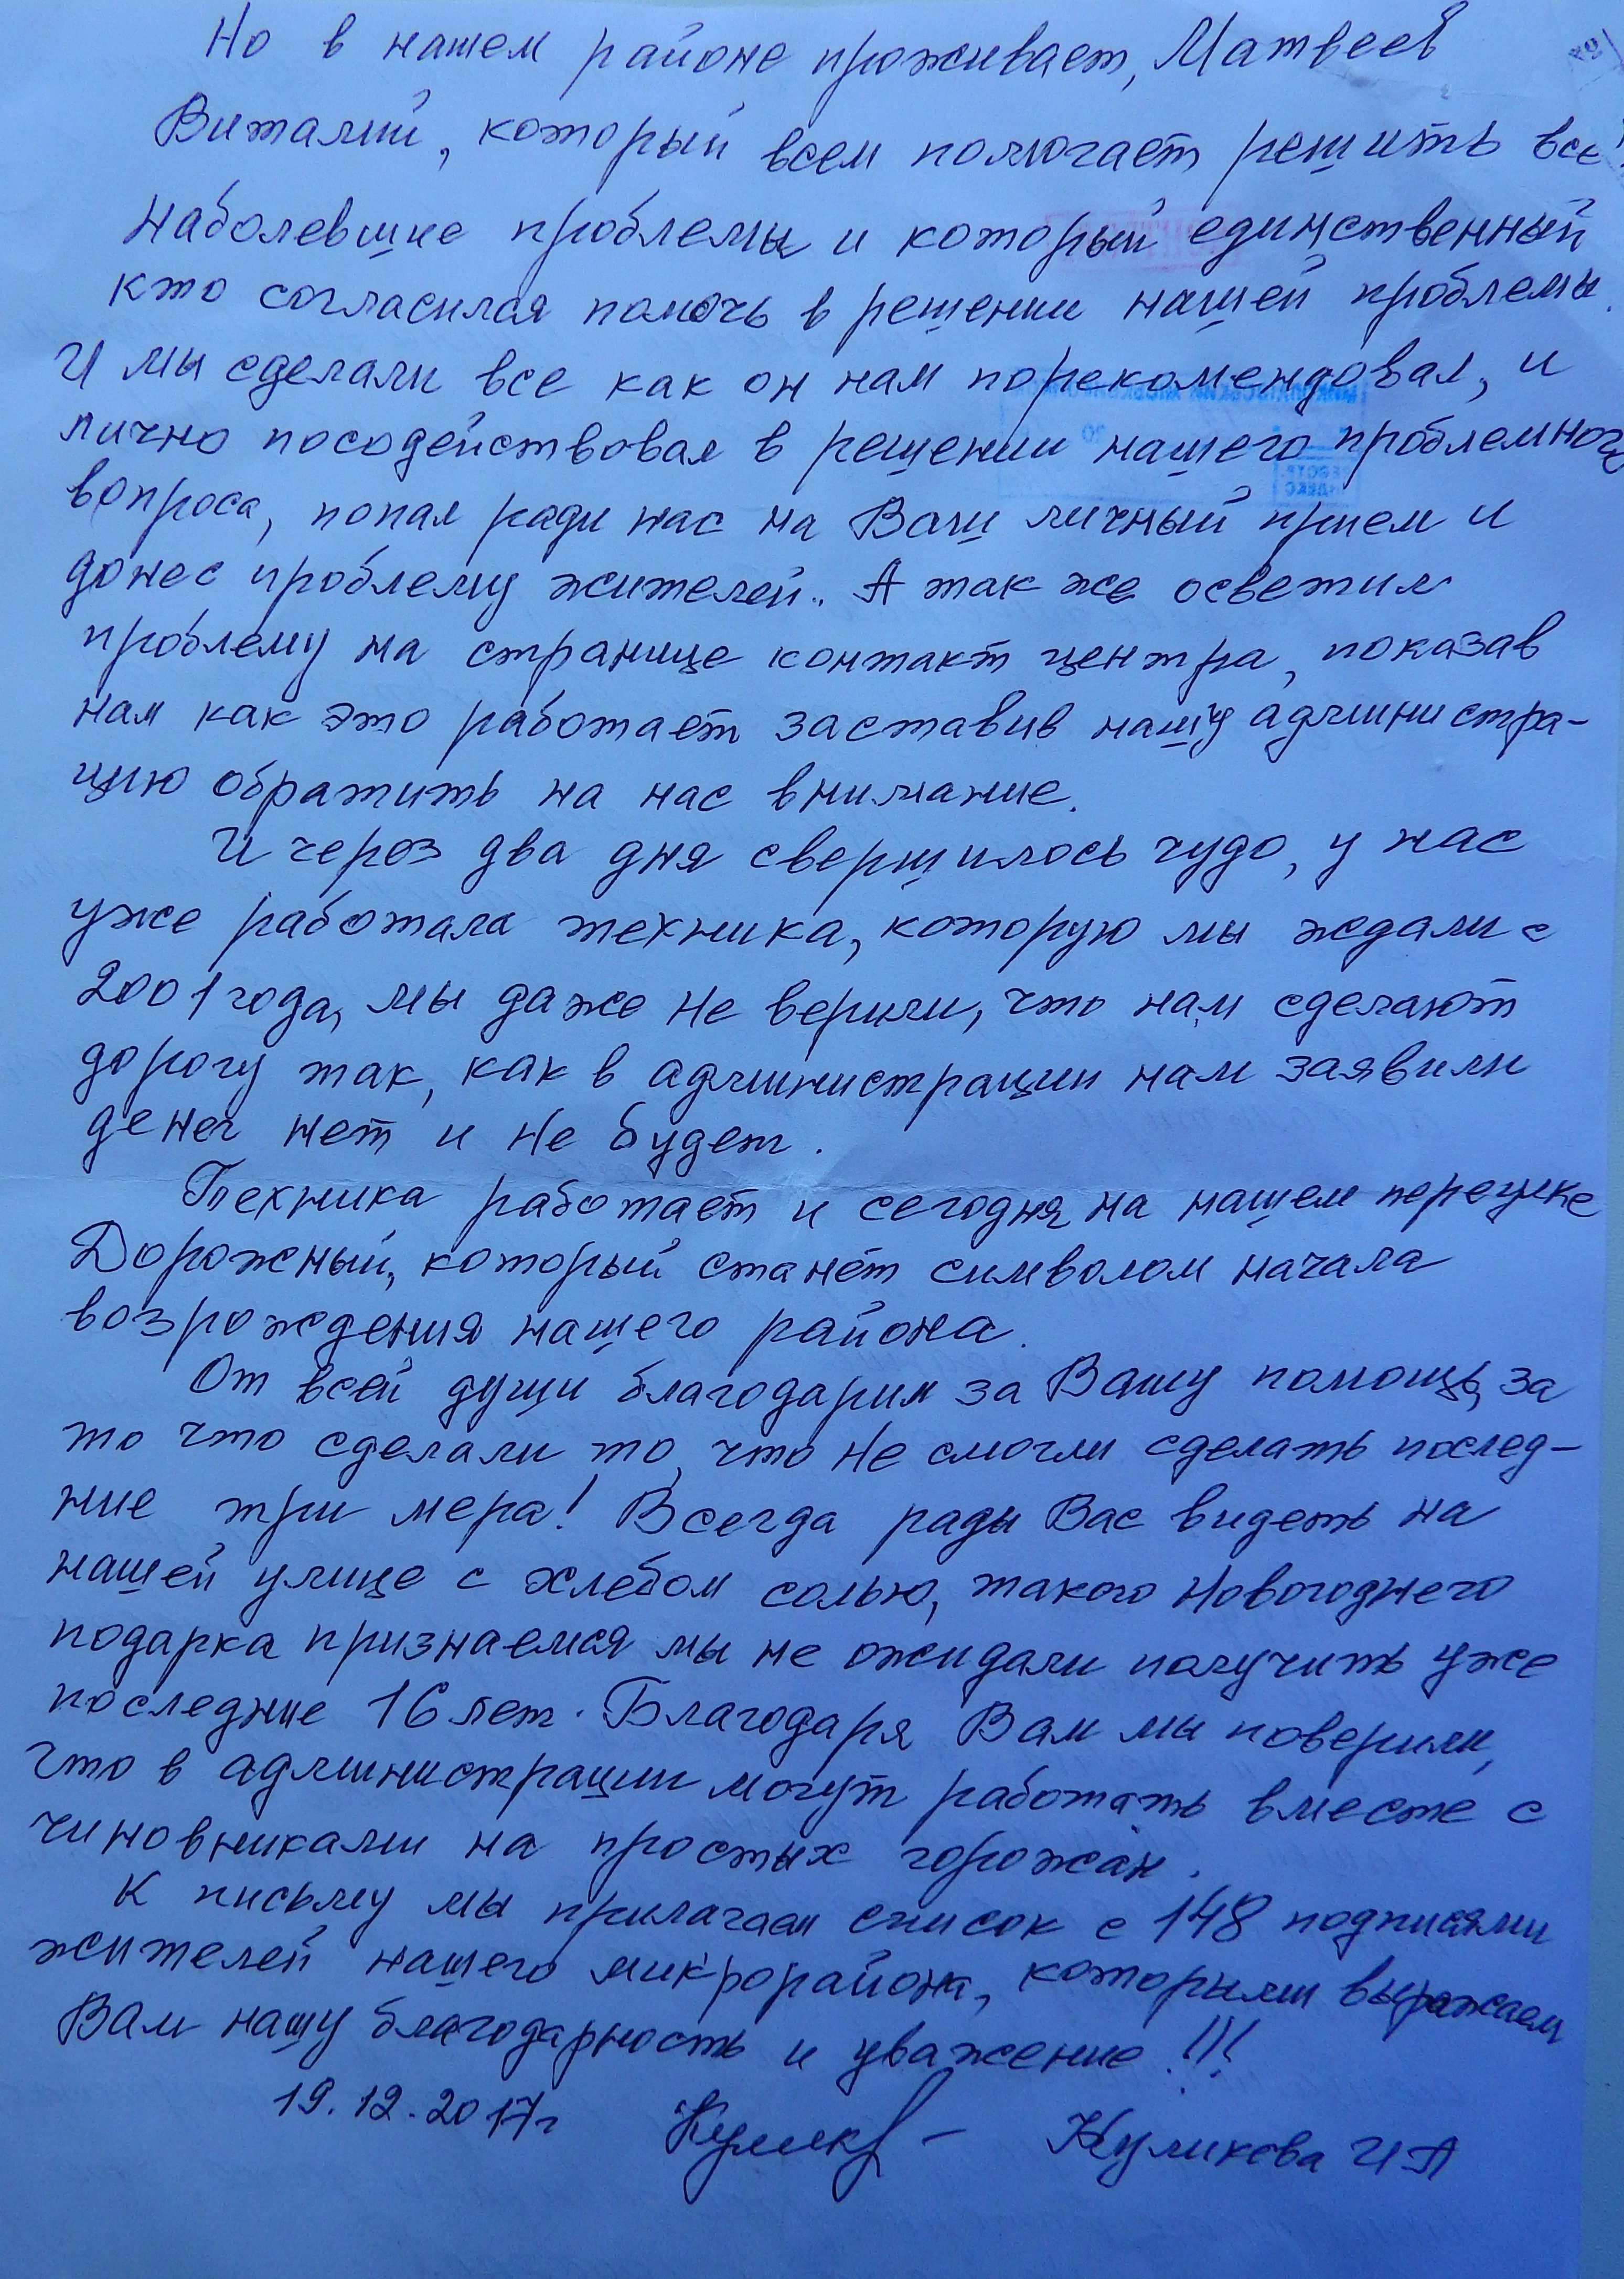 Но в нашем районе проживает, Матвеев
Виталий, который всем помогает решить все
наболевшие проблемы и который единственный
кто согласился помочь в решении нашей проблемы.
И мы сделали все как он нам порекомендовал, и
лично посодействовал в решении нашего проблемного
вопроса, попал ради нас на Ваш личный прием и
донес проблему жителей. А так же осветил
проблему на странице контакт центра, показав
нам как это работает заставив нашу администра-
цию обратить на нас внимание.
И через два дня свершилось чудо, у нас
уже работала техника, которую мы ждали с
2001 года, мы даже не верили, что нам сделают
дорогу так, как в администрации нам заявили
денег нет и не будет.
Техника работает и сегодня на нашем переулке
Дорожный, который станет символом начала
возрождения нашего района.
От всей души благодарим за Вашу помощь, за
то что сделали то, что не смогли сделать послед-
ние три мера! Всегда рады Вас видеть на
нашей улице с хлебом солью, такого новогоднего
подарка признаемся мы не ожидали получить уже
последние 16 лет. Благодаря Вам мы поверили,
что в администрации могут работать вместе с
чиновниками на простых горожан.
К письму мы прилагаем список с 148 подписями
жителей нашего микрорайона, которыми выражаем
Вам нашу благодарность и уважение!!!
19.12.2017г Кулик – Куликова И А